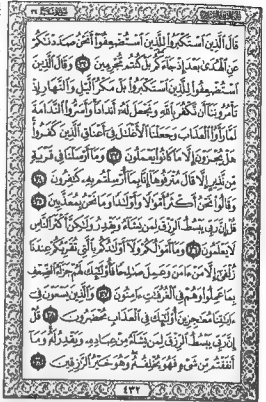 قَالَ ٱلَّذِينَ ٱسْتَكْبَرُوا۟ لِلَّذِينَ ٱسْتُضْعِفُوٓا۟ أَنَحْنُ صَدَدْنَٰكُمْ
عَنِ ٱلْهُدَىٰ بَعْدَ إِذْ جَآءَكُم بَلْ كُنتُم مُّجْرِمِينَ ٣٢ وَقَالَ ٱلَّذِينَ
ٱسْتُضْعِفُوا۟ لِلَّذِينَ ٱسْتَكْبَرُوا۟ بَلْ مَكْرُ ٱلَّيْلِ وَٱلنَّهَارِ إِذْ
تَأْمُرُونَنَآ أَن نَّكْفُرَ بِٱللَّهِ وَنَجْعَلَ لَهُۥٓ أَندَادًا وَأَسَرُّوا۟ ٱلنَّدَامَةَ
لَمَّا رَأَوُا۟ ٱلْعَذَابَ وَجَعَلْنَا ٱلْأَغْلَٰلَ فِىٓ أَعْنَاقِ ٱلَّذِينَ كَفَرُوا۟
هَلْ يُجْزَوْنَ إِلَّا مَا كَانُوا۟ يَعْمَلُونَ ٣٣ وَمَآ أَرْسَلْنَا فِى قَرْيَةٍ
مِّن نَّذِيرٍ إِلَّا قَالَ مُتْرَفُوهَآ إِنَّا بِمَآ أُرْسِلْتُم بِهِۦ كَٰفِرُونَ ٣٤
وَقَالُوا۟ نَحْنُ أَكْثَرُ أَمْوَٰلًا وَأَوْلَٰدًا وَمَا نَحْنُ بِمُعَذَّبِينَ ٣٥
قُلْ إِنَّ رَبِّى يَبْسُطُ ٱلرِّزْقَ لِمَن يَشَآءُ وَيَقْدِرُ وَلَٰكِنَّ أَكْثَرَ ٱلنَّاسِ
لَا يَعْلَمُونَ ٣٦ وَمَآ أَمْوَٰلُكُمْ وَلَآ أَوْلَٰدُكُم بِٱلَّتِى تُقَرِّبُكُمْ عِندَنَا
زُلْفَىٰٓ إِلَّا مَنْ ءَامَنَ وَعَمِلَ صَٰلِحًا فَأُو۟لَٰٓئِكَ لَهُمْ جَزَآءُ ٱلضِّعْفِ
بِمَا عَمِلُوا۟ وَهُمْ فِى ٱلْغُرُفَٰتِ ءَامِنُونَ ٣٧ وَٱلَّذِينَ يَسْعَوْنَ فِىٓ
ءَايَٰتِنَا مُعَٰجِزِينَ أُو۟لَٰٓئِكَ فِى ٱلْعَذَابِ مُحْضَرُونَ ٣٨ قُلْ
إِنَّ رَبِّى يَبْسُطُ ٱلرِّزْقَ لِمَن يَشَآءُ مِنْ عِبَادِهِۦ وَيَقْدِرُ لَهُۥ وَمَآ
أَنفَقْتُم مِّن شَىْءٍ فَهُوَ يُخْلِفُهُۥ وَهُوَ خَيْرُ ٱلرَّٰزِقِينَ ٣٩
٤٣٢